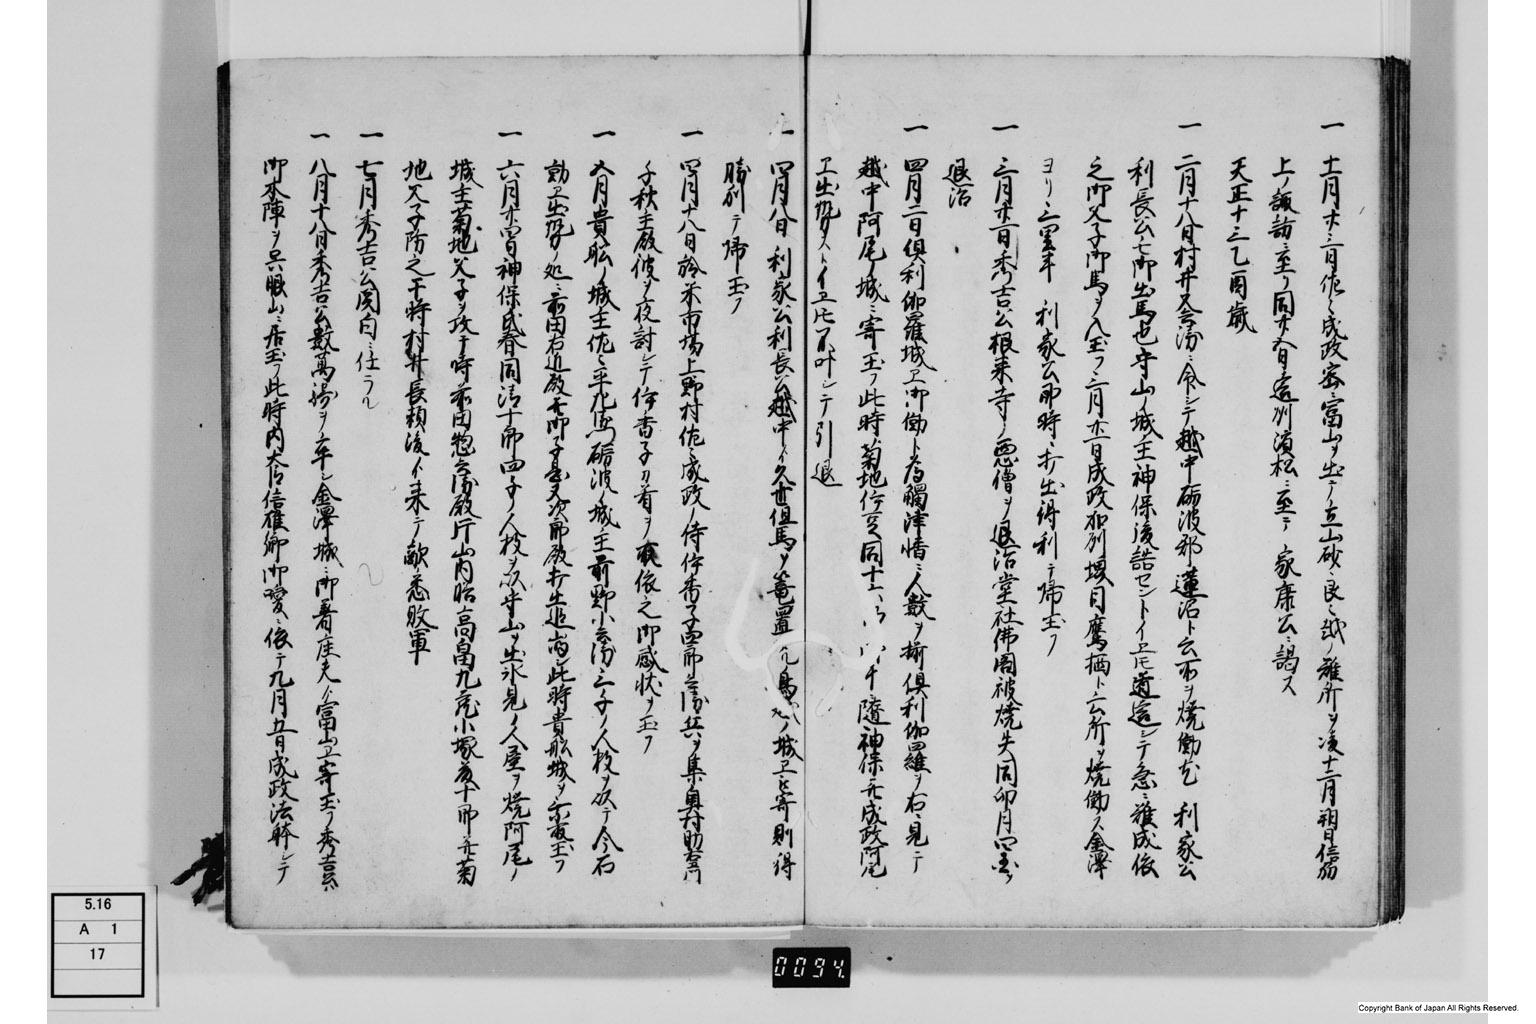 一 十一月廿三日佐々成政密ニ富山ヲ出テ立山砂良々越ノ難所ヲ凌十二月朔日信列
上ノ諏訪ニ至リ同廿五日遠州濱松ニ至テ 家康公ニ謁ス
天正十三乙酉歳
一 二月十八日村井又兵衛ニ令シテ越中砺波郡蓮沼ト云所ヲ焼働也 利家公
利長公モ御出馬也守山ノ城主神保後詰セントイヱ圧道遠シテ急ニ難成依
之御父子御馬ヲ入玉フ二月廿一日成政加列堺目鷹栖ト云所ヲ焼働ス金澤
ヨリ三里半 利家公即時ニ打出得利テ帰玉フ
一 三月廿一日秀吉公根来寺ノ悪僧ヲ退治堂社佛閣被焼失同卯月
退治
一 四月二日倶利伽羅城ヱ御働ト为觸津幡ニ人数ヲ揃倶利伽羅ヲ右ニ見テ
越中阿尾ノ城ニ寄玉フ此時菊地 同十六 随神保 成政阿尾
ヱ出勢ストイヱ圧不叶シテ引退
一 四月八日 利家公利長公越中ヘ 但馬ヲ篭置 鳥越ノ城ヱ 寄則得
勝利テ帰玉フ
一 四月十八日 市場上野村佐々成政ノ侍 兵ヲ集奥村助右衛門
千秋主殿彼ヲ夜討シテ 首ヲ 依之御感状ヲ玉フ
一 五月貴舩ノ城主佐々平左衛門砺波ノ城主前野小兵衛三千ノ人数ヲ以テ今石
動ヱ出勢ノ処ニ前田右近殿并御子息又次郎殿打出追崩此時貴舩城ヲ 玉フ
一 六月廿四日神保氏春同清十郎四千ノ人数ヲ以守山ヲ出氷見ノ人屋ヲ焼阿尾ノ
城主菊地父子ヲ攻于時前田惣兵衛殿片山内膳高畠九蔵小塚藤十郎并菊
地父子防之于時村井長頼後ヘ来テ敵悉敗軍
一 七月秀吉公関白ニ任ラル
一 八月十八日秀吉公数萬 ヲ卒シ金澤城ニ御着座夫ヘ富山ヱ寄玉フ秀吉公
御本陣ヲ呉服山ニ居玉フ此時内大臣信雄卿御曖ニ依テ九月五日成政法躰シテ
5.16
A 1
17
0094.
Copyright Bank of Japan All Rights Reserved.